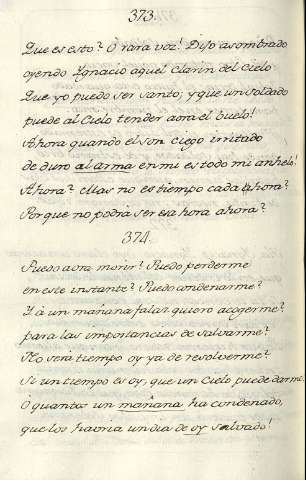 373.
Que es esto? O rara voz! Dijo asombrado
oyendo Ygnacio aquel Clarin del Cielo
Que yo puedo ser santo, y que un soldado
puede al Cielo tender aora el buelo!
Ahora quando el son ciego irritado
de duro al arma en mi es todo mi anhelo!
Ahora? Mas no es tiempo cada ahora?
Porque no podrà ser esa hora ahora?
374.
Puedo aora morir? Puedo perderme
en este instante? Puedo condenarme?
Y à un mañana falaz quiero acogerme?
para las importancias de salvarme?
No serà tiempo oy ya de resolverme?
Si un tiempo es oy, que un Cielo puede darme
O quantos un mañana ha condenado,
que los havria un dia de oy salvado!